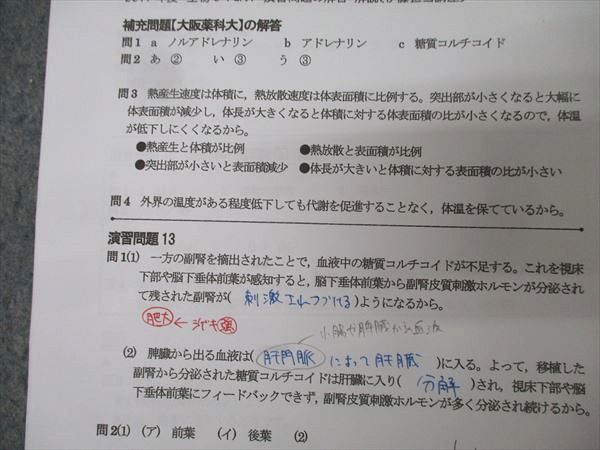 補充問題【大阪薬科大】の解答
問1 a ノルアドレナリン b アドレナリン c 糖質コルチコイド
問2 あ ② い ③ う ③
問3 熱産生速度は体積に，熱放散速度は体表面積に比例する。突出部が小さくなると大幅に
体表面積が減少し，体長が大きくなると体積に対する体表面積の比が小さくなるので，体温
が低下しにくくなるから。
●熱産生と体積が比例 ●熱放散と表面積が比例
●突出部が小さいと表面積減少 ●体長が大きいと体積に対する表面積の比が小さい
問4 外界の温度がある程度低下しても代謝を促進することなく，体温を保てているから。
演習問題 13
問1(1) 一方の副腎を摘出されたことで，血液中の糖質コルチコイドが不足する。これを視床
下部や脳下垂体前葉が感知すると，脳下垂体前葉から副腎皮質刺激ホルモンが分泌され
て残された副腎が( 刺激されつづける )ようになるから。
肥大 ← シゲキ強
小腸や脾臓からの血液
(2) 脾臓から出る血液は( 肝門脈 によって肝臓 )に入る。よって，移植した
副腎から分泌された糖質コルチコイドは肝臓に入り( 分解 )され，視床下部や脳
下垂体前葉にフィードバックできず，副腎皮質刺激ホルモンが多く分泌され続けるから。
問2(1) (ア) 前葉 (イ) 後葉 (2)